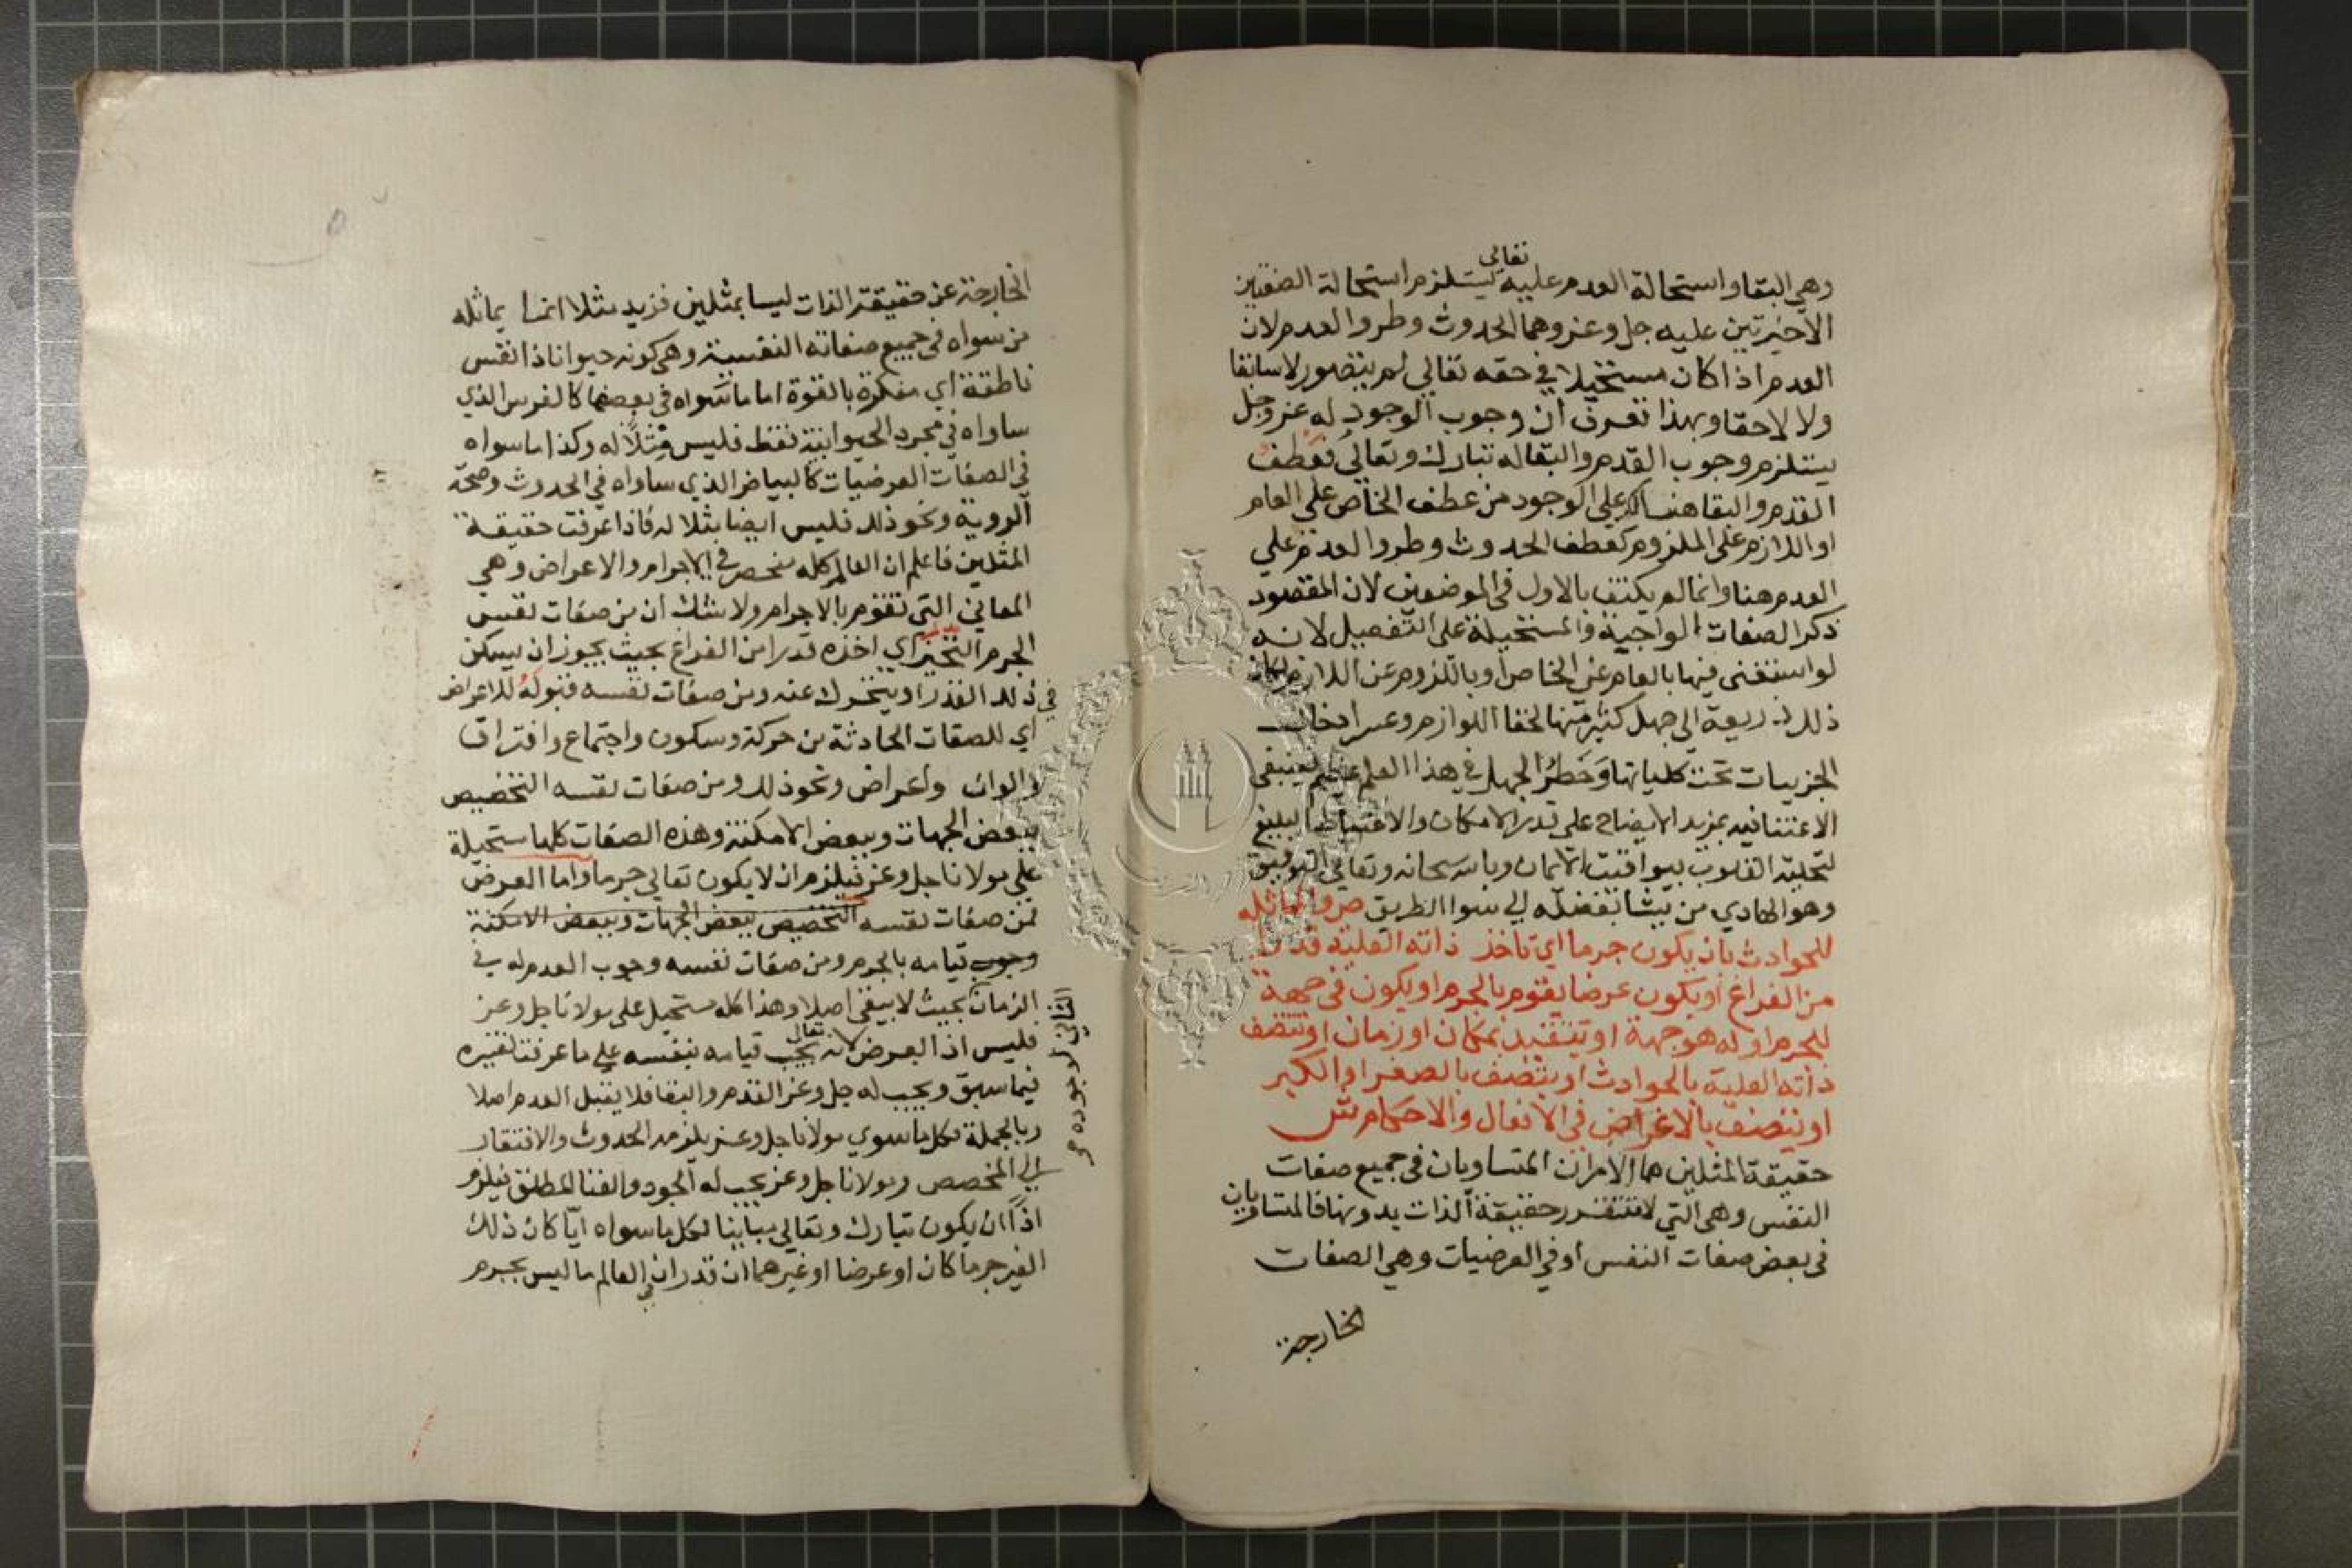 تعالى
وهي البقا واستحالة العدم عليه يستلزم استحالة الصفتين
الاخيرتين عليه جل وعز وهما الحدوث وطروا لعدم لان
العدم اذا كان مستحيلا في حقه تعالي لم يتصور لا سابقا
ولا لاحقا وبهذا تعرف ان وجوب الوجود له عز وجل
يستلزم وجوب القدم والبقا له تبارك وتعالي فعطف
القدم والبقا هنالك علي الوجود من عطف الخاص علي العام
او اللازم على الملزوم كعطف الحدوث وطروا لعدم علي
العدم هنا وانما لم يكتف بالاول في الموضعين لان المقصود
ذكر الصفات الواجبة والمستحيلة على التفصيل لانه
لو استغنى فيها بالعام عن الخاص او بالملزوم عن اللازم لكان
ذلك ذريعة الى جهل كثير منها لخفا اللوازم وعسر ادخال
الجزييات تحت كلياتها وخطر الجهل في هذا العلم عظيم فينبغي
الاعتنا فيه بمزيد الايضاح على قدر الامكان والاحتياط البليغ
لتحلية القلوب بيواقيت الايمان وبالله سبحانه وتعالي التوفيق
وهو الهادي من يشا بفضله الي سوا الطريق ص والمماثله
للحوادث بان يكون جرما اي تاخذ ذاته العلية قدرا
من الفراغ او يكون عرضا يقوم بالجرم او يكون في جهة
للجرم او له هو جهة او يتقيد بمكان او زمان او تتصف
ذاته العلية بالحوادث او يتصف بالصغر او الكبر
او يتصف بالاغراض في الافعال والاحكام ش
حقيقة المثلين هما الامران المتساويان في جميع صفات
النفس وهي التي لا تتقرر حقيقة الذات بدونها فالمتساويان
في بعض صفات النفس او في العرضيات وهي الصفات
الخارجة
الخارجة عن حقيقة الذات ليسا بمثلين فزيد مثلا انما يماثله
من سواه في جميع صفاته النفسية وهي كونه حيوانا ذا نفس
ناطقة اي مفكرة بالقوة اما ما سواه في بعضها كالفرس الذي
ساواه في مجرد الحيوانية فقط فليس مثلا له وكذا ما سواه
في الصفات العرضيات كالبياض الذي ساواه في الحدوث وصحة
الروية ونحو ذلك فليس ايضا مثلا له فاذا عرفت حقيقة
المثلين فاعلم ان العالم كله منحصر في الاجرام والاعراض وهي
المعاني التي تقوم بالاجرام ولا شك ان من صفات نفس
الجرم التحيز اي اخذه قدرا من الفراغ بحيث يجوز ان يسكن
في ذلك القدر او يتحرك عنه ومن صفات نفسه قبوله للاعراض
اي للصفات الحادثة من حركة وسكون واجتماع وافتراق
والوان واعراض ونحو ذلك ومن صفات نفسه التخصيص
ببعض الجهات وببعض الامكنة وهذه الصفات كلها مستحيلة
علي مولانا جل وعز فيلزم ان لا يكون تعالي جرما واما العرض
فمن صفات نفسه التخصيص ببعض الجهات وببعض الامكنة
وجوب قيامه بالجرم ومن صفات نفسه وجوب العدم له في
الزمان بحيث لا يبقى اصلا وهذا كله مستحيل على مولانا جل وعز
الثاني لوجوده
تعالى
فليس اذا بعرض لانه يجب قيامه بنفسه علي ما عرفت تفسيره
فيما سبق ويجب له جل وعز القدم والبقا فلا يقبل العدم اصلا
وبالجملة فكل ما سوي مولانا جل وعز يلزمه الحدوث والافتقار
الي المخصص ومولانا جل وعز يجب له الوجود والغنا المطلق فيلزم
اذا ان يكون تبارك وتعالي مباينا لكل ما سواه ايا كان ذلك
الغير جرما كان او عرضا او غيرهما ان قدر ان في العالم ما ليس بجرم